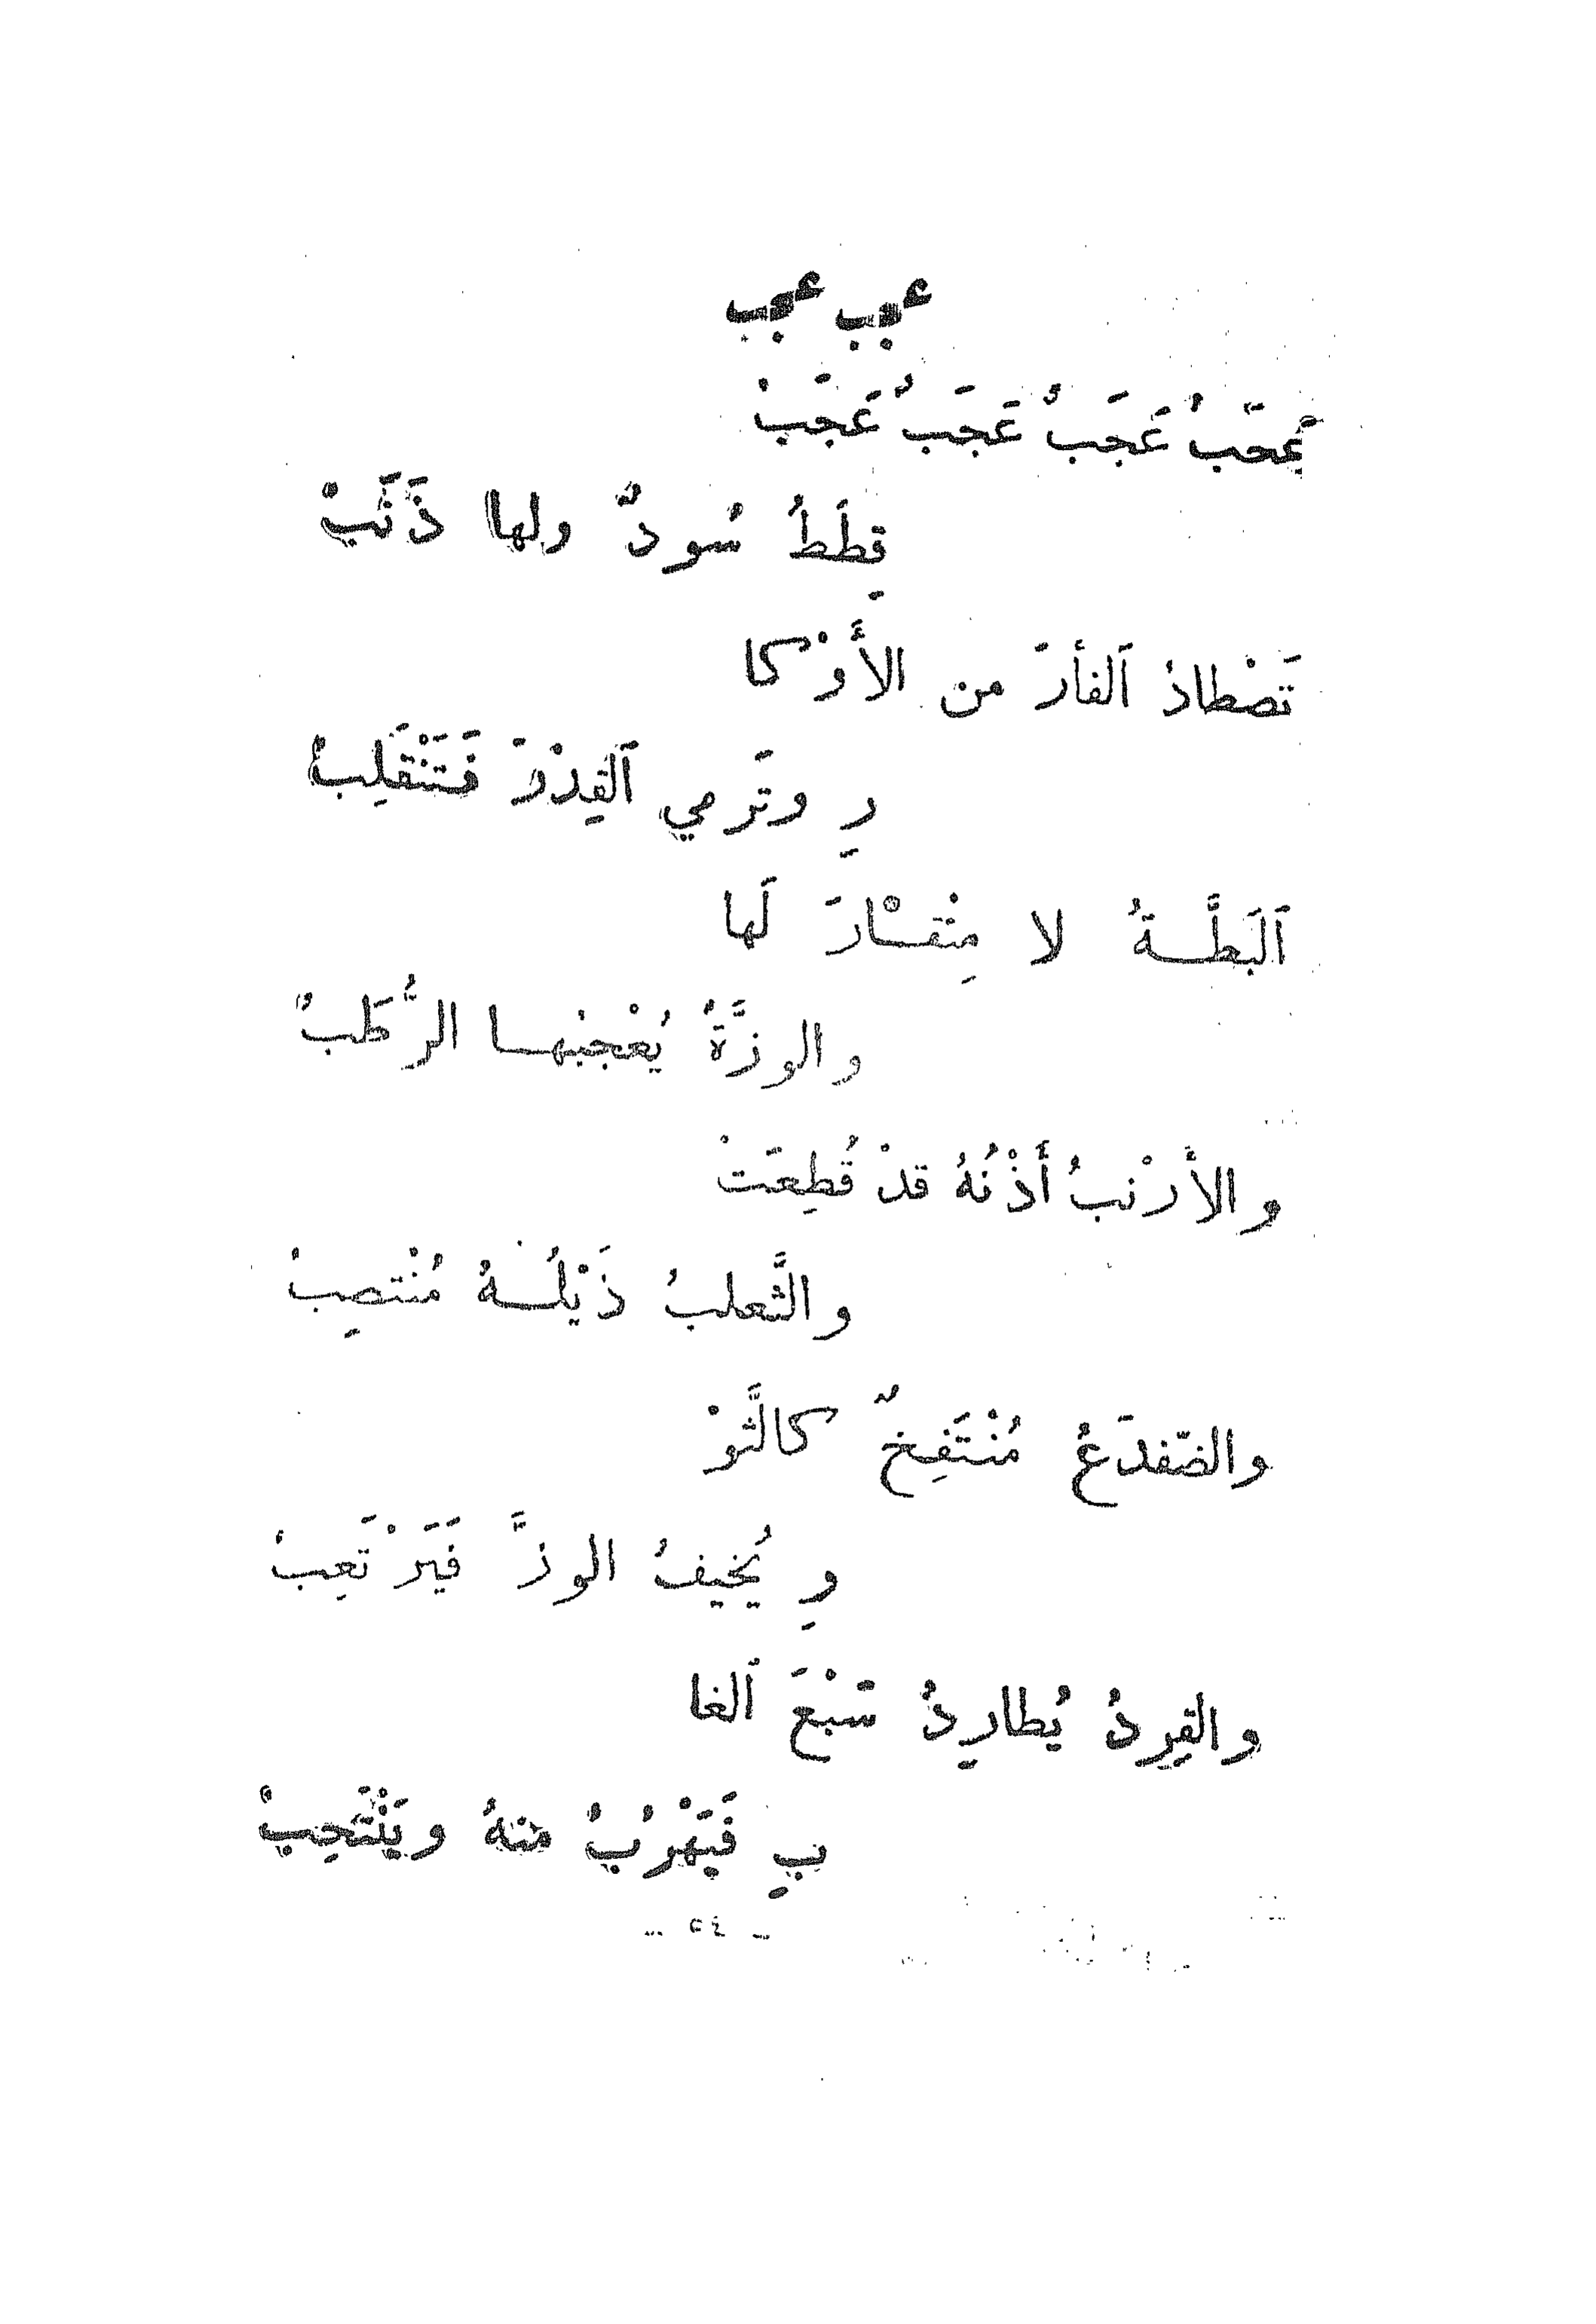 عجب عجب
عَجَبٌ عَجَبٌ عَجَبٌ عَجَبْ
قِطَطٌ سُودٌ ولها ذَنَبْ
تَصْطادُ ٱلفأرَ من الأَوْكا
رِ وتَرمي ٱلقِدْرَ فَتَنْقَلِبُ
ٱلبَطَّـةُ لا مِنْقـارَ لَها
والوزَّةُ يُعْجبُهـا الرُّطَبُ
والأَرْنبُ أَذْنُهُ قدْ قُطِعَتْ
والثَّعلبُ ذَيْلُـهُ مُنْتصِبُ
والضّفدَعُ مُنْتَفِخٌ كالثَّوْ
رِ يُخيفُ الوزَّ فَيَرْتَعِبُ
والقِردُ يُطارِدُ سَبْعَ ٱلغا
بِ فَيَهْرُبُ منهُ ويَنْتَحِبُ
– ٢٤ –